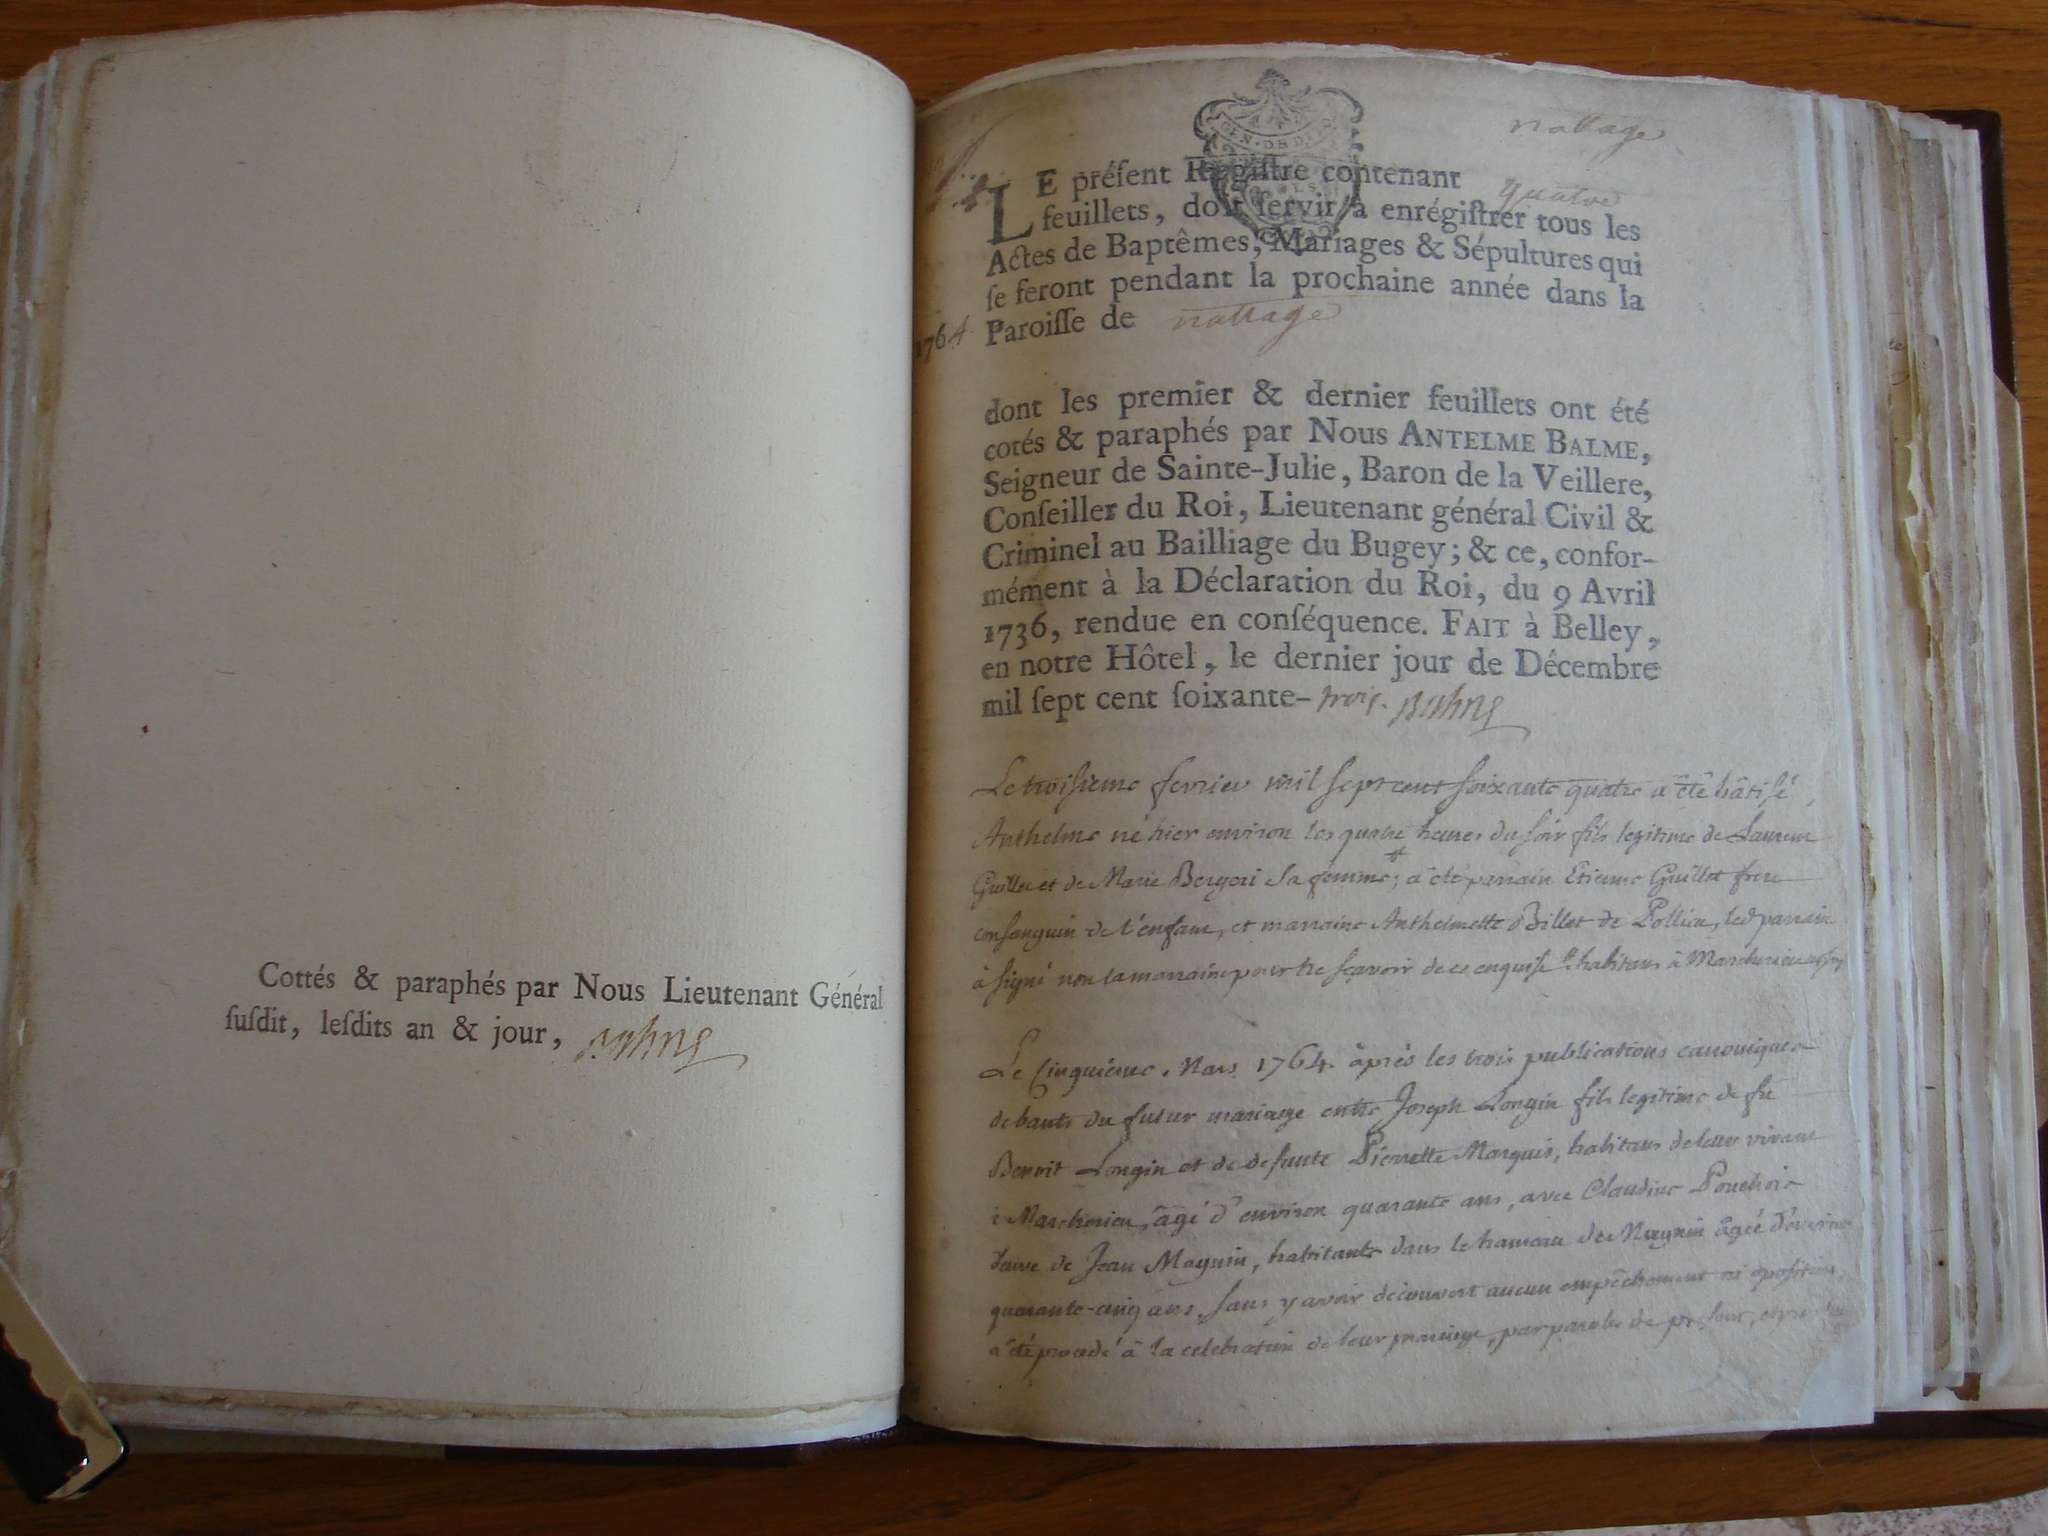 Cottés & paraphés par Nous Lieutenant Général
ſuſdit, leſdits an & jour, Balme
nattage
LE préſent Regiſtre contenant quatre
feuillets, doit ſervir à enrégiſtrer tous les
Actes de Baptêmes, Mariages & Sépultures qui
ſe feront pendant la prochaine année dans la
1764 Paroiſſe de nattage
dont les premier & dernier feuillets ont été
cotés & paraphés par Nous ANTELME BALME,
Seigneur de Sainte-Julie, Baron de la Veillere,
Conſeiller du Roi, Lieutenant général Civil &
Criminel au Bailliage du Bugey; & ce, confor-
mément à la Déclaration du Roi, du 9 Avril
1736, rendue en conſéquence. FAIT à Belley,
en notre Hôtel, le dernier jour de Décembre
mil ſept cent ſoixante- trois. Balme
Le troisieme fevrier mil sept cent soixante quatre a été bâtisé
Anthelme né hier environ les quatre heures du soir fils legitime de Laurent
Guillot et de Marie sa femme; a été parrain Etienne Guillot frere
consanguin de l'enfant, et marraine Anthelmette Billet de Pollieu, led parrain
à signé non la marraine pour ne sçavoir de ce enquise habitans à
Le Cinquiéme Mars 1764 après les trois publications canoniques
de bants du futur mariage entre Joseph Longin fils legitime de fû
Benoit Longin et de defunte Pierrette Marquis, habitans de leur vivant
à âgé d'environ quarante ans, avec Claudine
veuve de Jean Magnin, habitante dans le hameau de âgée d'environ
quarante-cinq ans, sans y avoir découvert aucun empêchement ni oposition,
a été procedé à la celebration de leur mariage, par paroles de present,